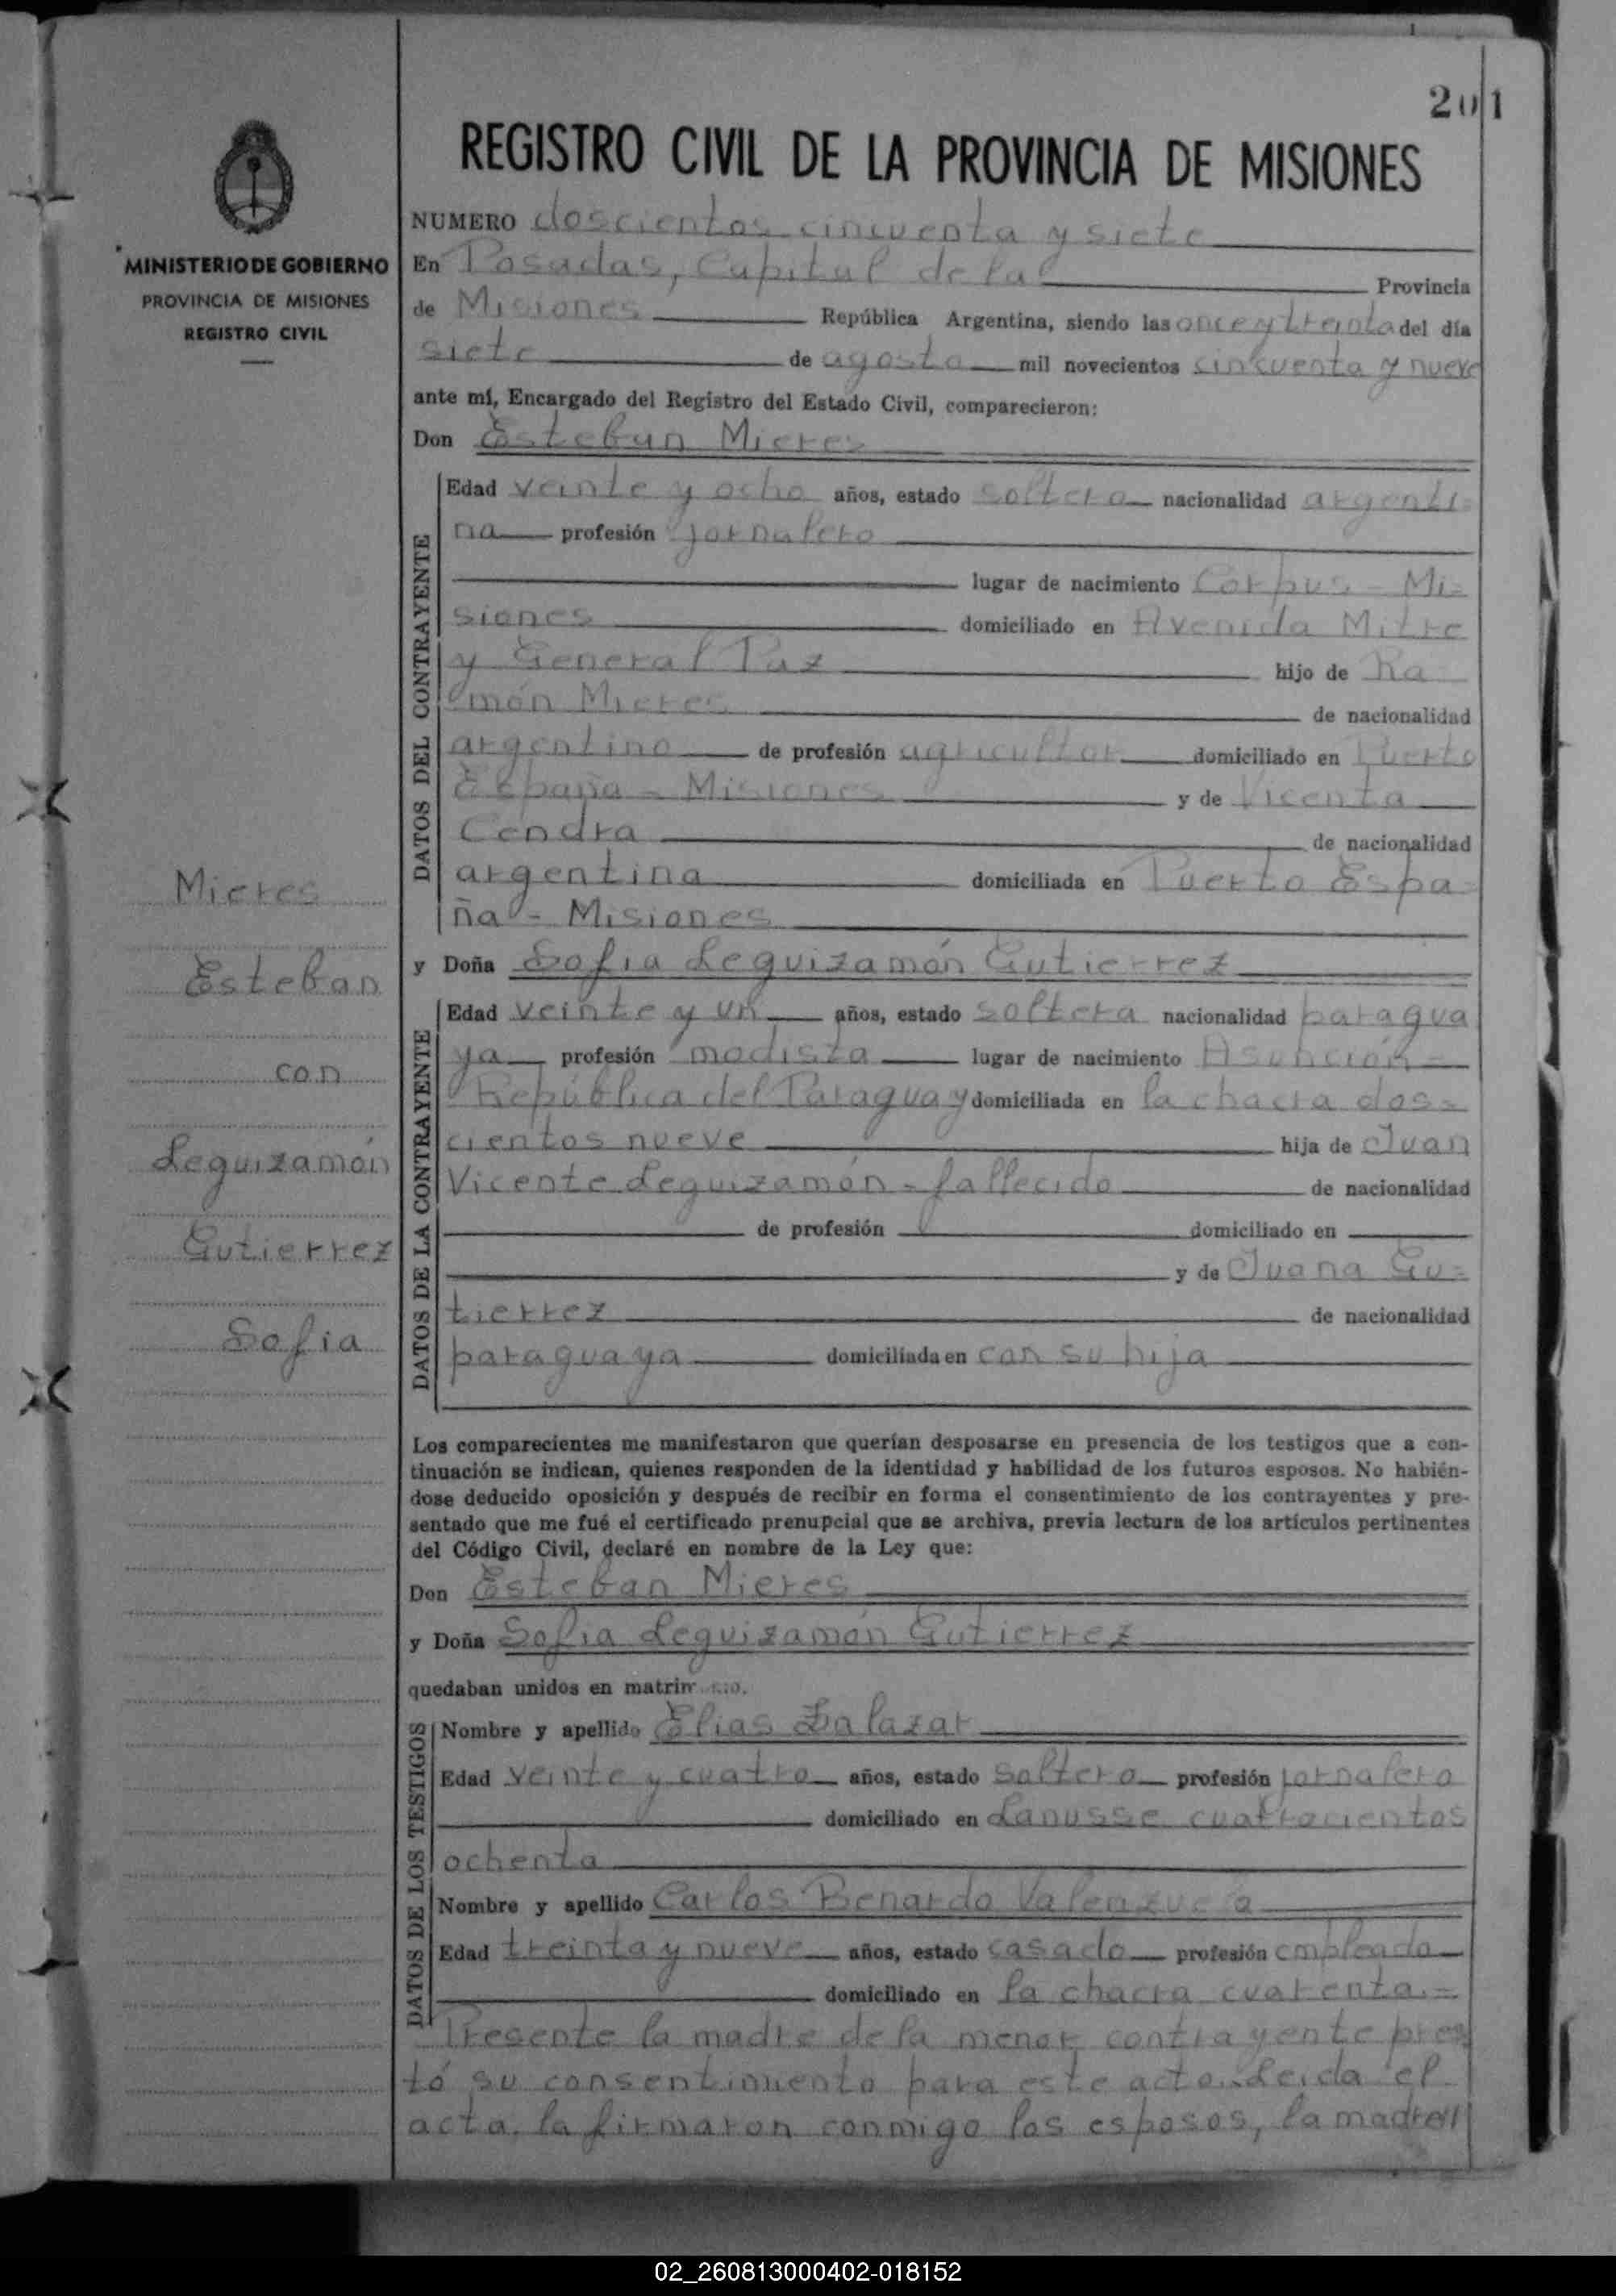 201
REGISTRO CIVIL DE LA PROVINCIA DE MISIONES
MINISTERIO DE GOBIERNO
PROVINCIA DE MISIONES
REGISTRO CIVIL
Mieres
Esteban
con
Leguizamón
Gutierrez
Sofia
NUMERO doscientos cincuenta y siete
En Posadas, Capital de la Provincia
de Misiones República Argentina, siendo las once y treinta del día
siete de agosto mil novecientos cincuenta y nueve
ante mí, Encargado del Registro del Estado Civil, comparecieron:
Don Esteban Mieres
DATOS DEL CONTRAYENTE
Edad veinte y ocho años, estado soltero nacionalidad argenti-
na profesión jornalero
lugar de nacimiento Corpus - Mi-
siones domiciliado en Avenida Mitre
y General Paz hijo de Ra
món Mieres de nacionalidad
argentino de profesión agricultor domiciliado en Puerto
España - Misiones y de Vicenta
Cendra de nacionalidad
argentina domiciliada en Puerto Espa-
ña - Misiones
y Doña Sofia Leguizamón Gutierrez
DATOS DE LA CONTRAYENTE
Edad veinte y un años, estado soltera nacionalidad paragua
ya profesión modista lugar de nacimiento Asunción -
República del Paraguay domiciliada en la chacra dos-
cientos nueve hija de Juan
Vicente Leguizamón - fallecido de nacionalidad
de profesión domiciliado en
y de Juana Gu-
tierrez de nacionalidad
paraguaya domiciliada en con su hija
Los comparecientes me manifestaron que querían desposarse en presencia de los testigos que a con-
tinuación se indican, quienes responden de la identidad y habilidad de los futuros esposos. No habién-
dose deducido oposición y después de recibir en forma el consentimiento de los contrayentes y pre-
sentado que me fué el certificado prenupcial que se archiva, previa lectura de los artículos pertinentes
del Código Civil, declaré en nombre de la Ley que:
Don Esteban Mieres
y Doña Sofia Leguizamón Gutierrez
quedaban unidos en
DATOS DE LOS TESTIGOS
Nombre y apellido Elias Salazar
Edad veinte y cuatro años, estado soltero profesión jornalero
domiciliado en Lanusse cuatrocientos
ochenta
Nombre y apellido Carlos Benardo Valenzuela
Edad treinta y nueve años, estado casado profesión empleado
domiciliado en la chacra cuarenta.-
Presente la madre de la menor contrayente pres
tó su consentimiento para este acto. Leida el
acta, la firmaron conmigo los esposos, la madre
02_260813000402-018152